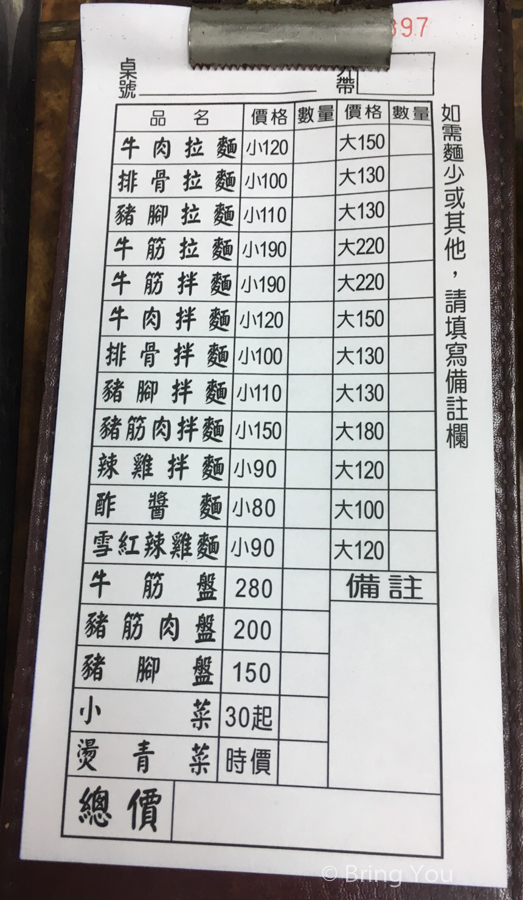 397
桌號
外帶
品名 價格 數量 價格 數量
牛肉拉麵 小120 大150
排骨拉麵 小100 大130
豬腳拉麵 小110 大130
牛筋拉麵 小190 大220
牛筋拌麵 小190 大220
牛肉拌麵 小120 大150
排骨拌麵 小100 大130
豬腳拌麵 小110 大130
豬筋肉拌麵 小150 大180
辣雞拌麵 小90 大120
酢醬麵 小80 大100
雪紅辣雞麵 小90 大120
牛筋盤 280 備註
豬筋肉盤 200
豬腳盤 150
小菜 30起
燙青菜 時價
總價
如需麵少或其他，請填寫備註欄
© Bring You